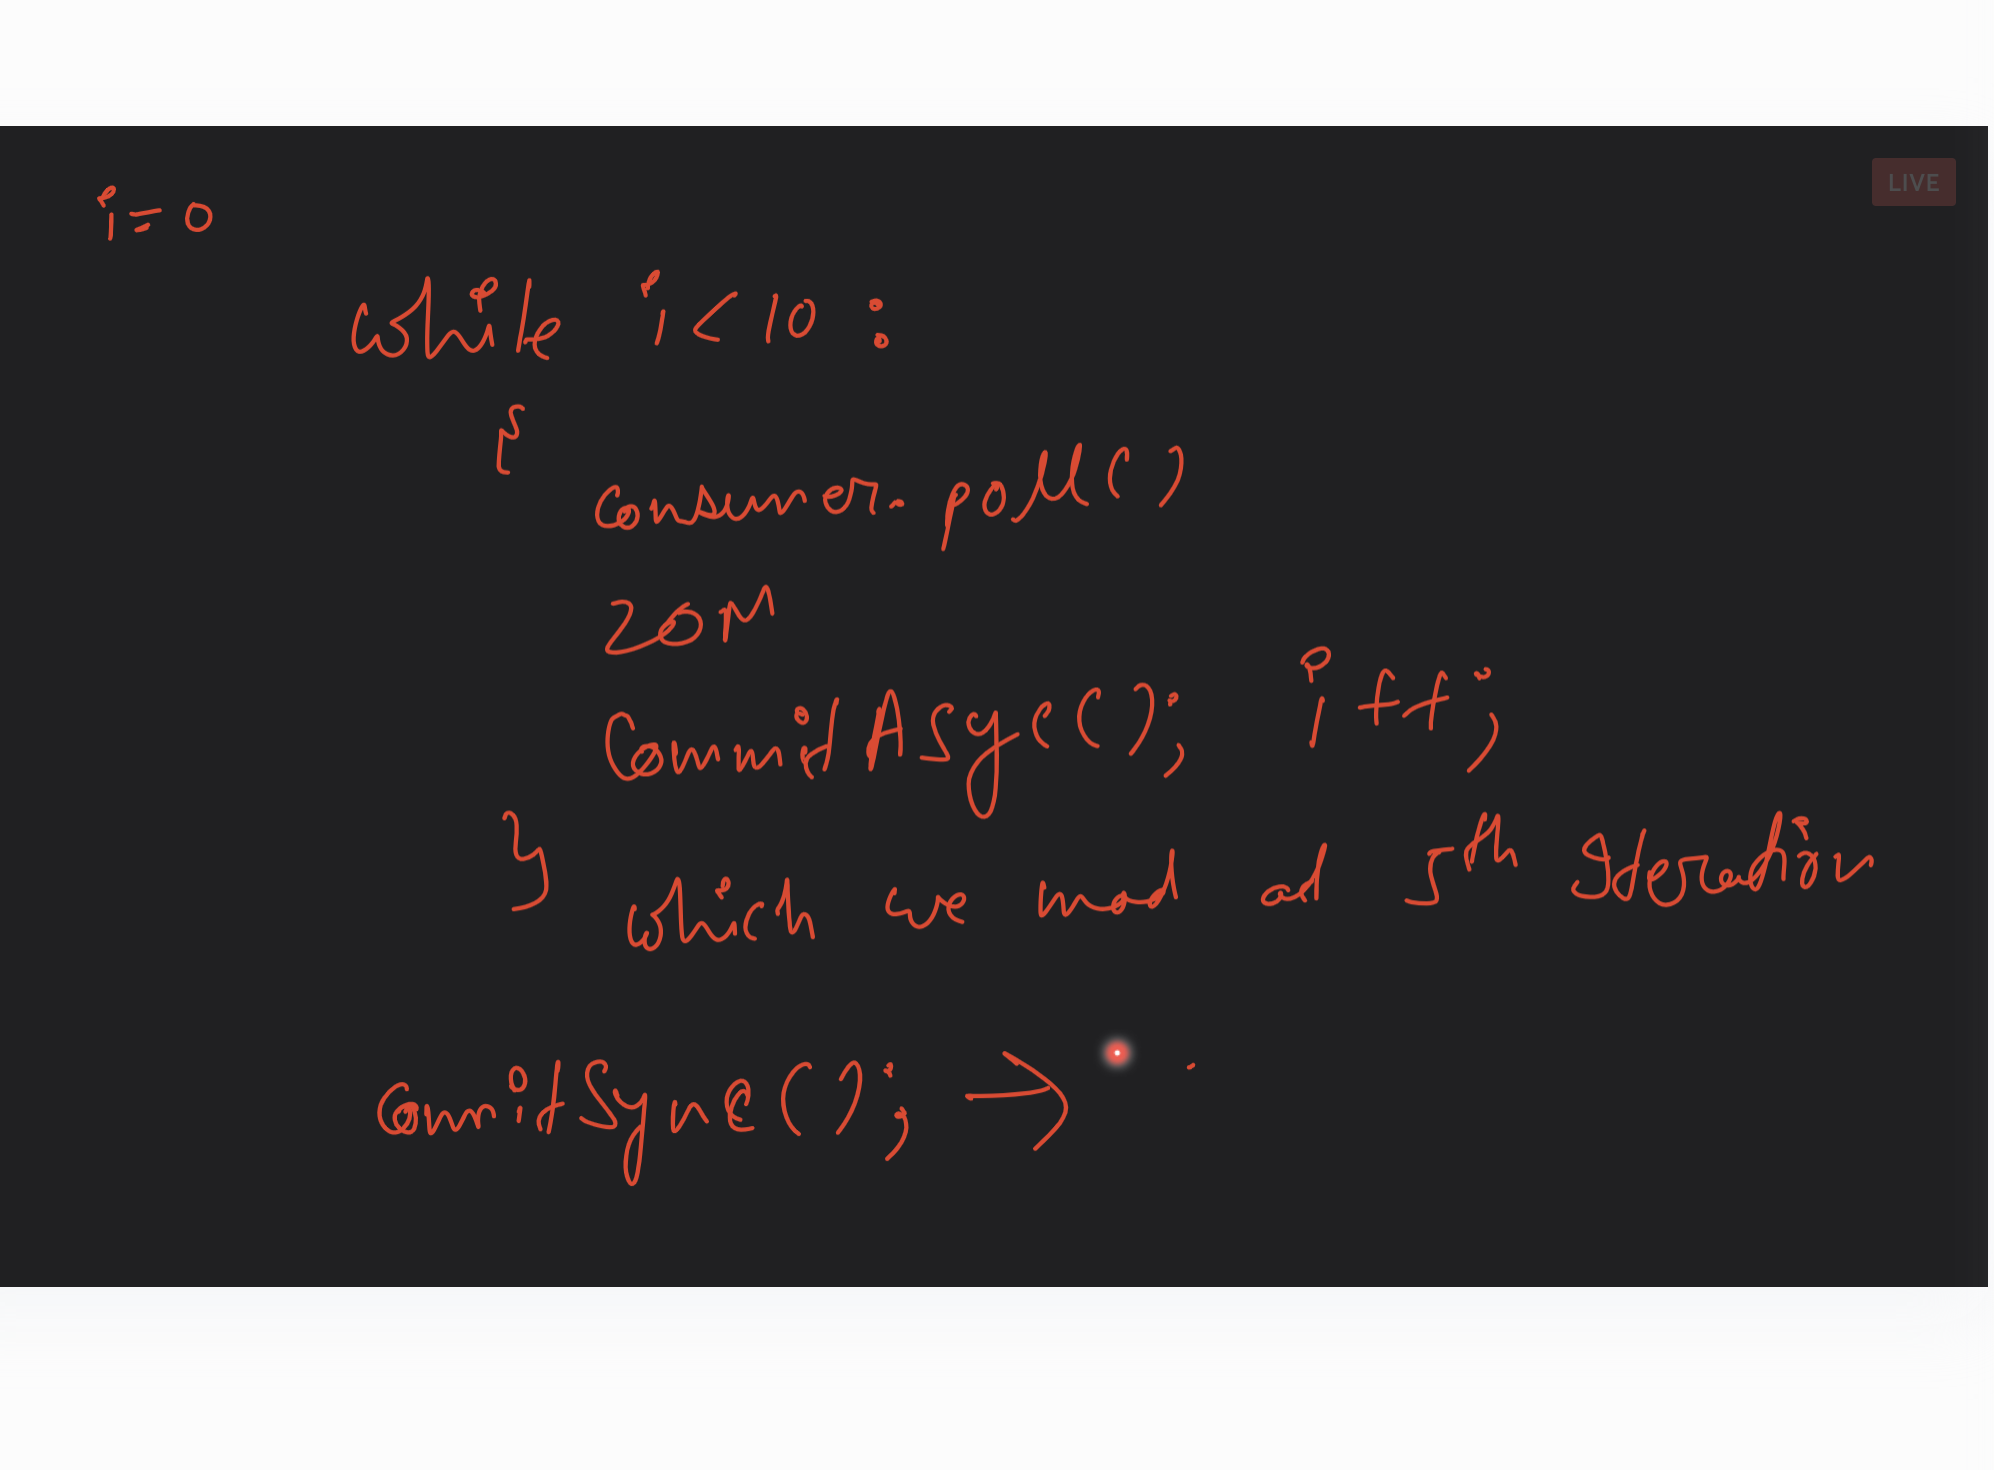 LIVE
i=0
while i<10:
{
consumer.poll()
20M
CommitASyc(); i++;
}
which we mad at 5th Iteration
CommitSync(); →